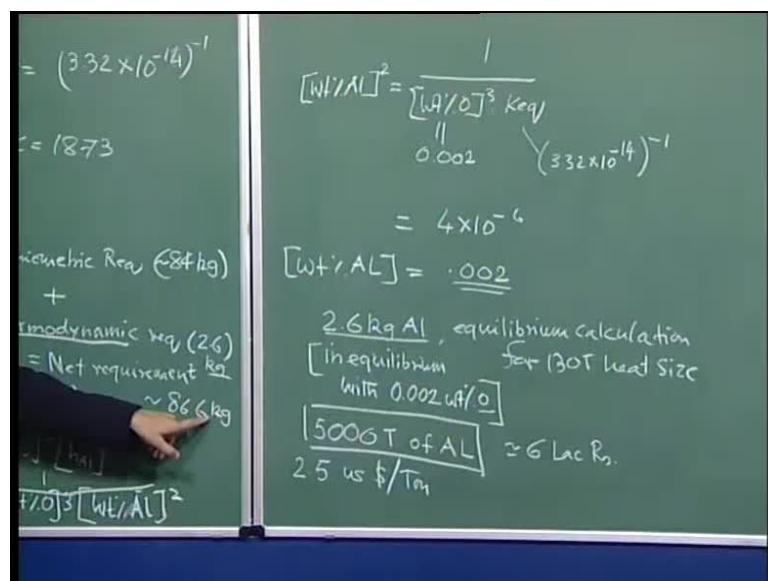 = (3.32 × 10⁻¹⁴)⁻¹
= 1873
Req (~84 kg)
+
req (2.6)
= Net requirement kg
~ 86.6 kg
[Wt% Al]²
[Wt% Al]² = 1 / [Wt% O]³ Keq
||
0.002
(3.32×10⁻¹⁴)⁻¹
= 4×10⁻⁶
[Wt% AL] = .002
2.6 kg Al, equilibrium calculation
for 130T heat size
[in equilibrium
with 0.002 wt% O]
500GT of AL ≃ 6 Lac Rs.
25 us $/Ton